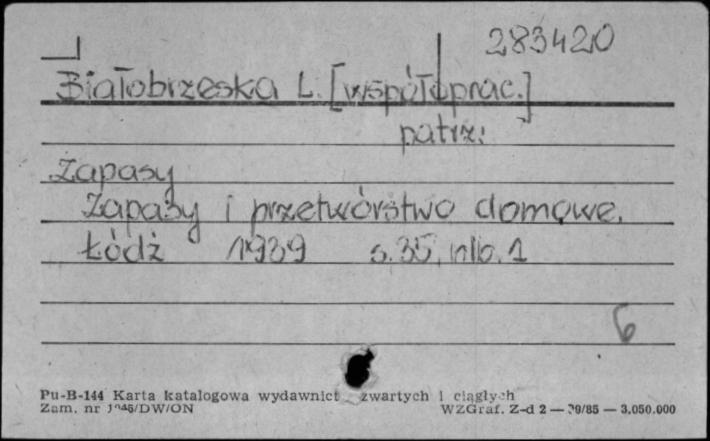 283420
Białobrzeska L. [współoprac.]
patrz:
Zapasy
Zapasy i przetwórstwo domowe.
Łódź 1939 s. 35, nlb. 1
6
Pu-B-144 Karta katalogowa wydawnict zwartych i ciągłych
Zam. nr /DW/ON WZGraf. Z-d 2 — 39/85 — 3.050.000